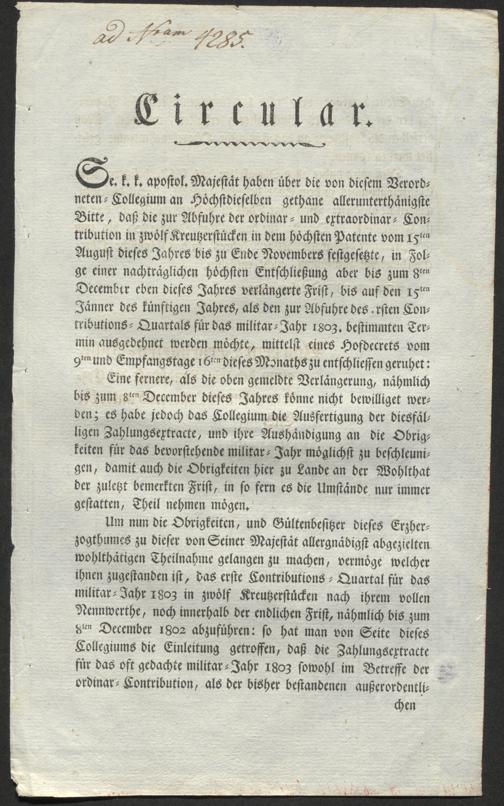 ad Nram 4285.
Circular.
Se. k. k. apostol. Majestät haben über die von diesem Verord-
neten-Collegium an Höchstdieselben gethane allerunterthänigste
Bitte, daß die zur Abfuhre der ordinar- und extraordinar-Con-
tribution in zwölf Kreutzerstücken in dem höchsten Patente vom 15ten
August dieses Jahres bis zu Ende Novembers festgesetzte, in Fol-
ge einer nachträglichen höchsten Entschließung aber bis zum 8ten
December eben dieses Jahres verlängerte Frist, bis auf den 15ten
Jänner des künftigen Jahres, als den zur Abfuhre des .rsten Con-
tributions-Quartals für das militar-Jahr 1803. bestimmten Ter-
min ausgedehnt werden möchte, mittelst eines Hofdecrets vom
9ten und Empfangstage 16ten dieses Monaths zu entschliessen geruhet:
Eine fernere, als die oben gemeldte Verlängerung, nähmlich
bis zum 8ten December dieses Jahres könne nicht bewilliget wer-
den; es habe jedoch das Collegium die Ausfertigung der diesfäl-
ligen Zahlungsextracte, und ihre Aushändigung an die Obrig-
keiten für das bevorstehende militar-Jahr möglichst zu beschleuni-
gen, damit auch die Obrigkeiten hier zu Lande an der Wohlthat
der zuletzt bemerkten Frist, in so fern es die Umstände nur immer
gestatten, Theil nehmen mögen.
Um nun die Obrigkeiten, und Gültenbesitzer dieses Erzher-
zogthumes zu dieser von Seiner Majestät allergnädigst abgezielten
wohlthätigen Theilnahme gelangen zu machen, vermöge welcher
ihnen zugestanden ist, das erste Contributions-Quartal für das
militar-Jahr 1803 in zwölf Kreutzerstücken nach ihrem vollen
Nennwerthe, noch innerhalb der endlichen Frist, nähmlich bis zum
8ten December 1802 abzuführen: so hat man von Seite dieses
Collegiums die Einleitung getroffen, daß die Zahlungsextracte
für das oft gedachte militar-Jahr 1803 sowohl im Betreffe der
ordinar-Contribution, als der bisher bestandenen außerordentli-
chen